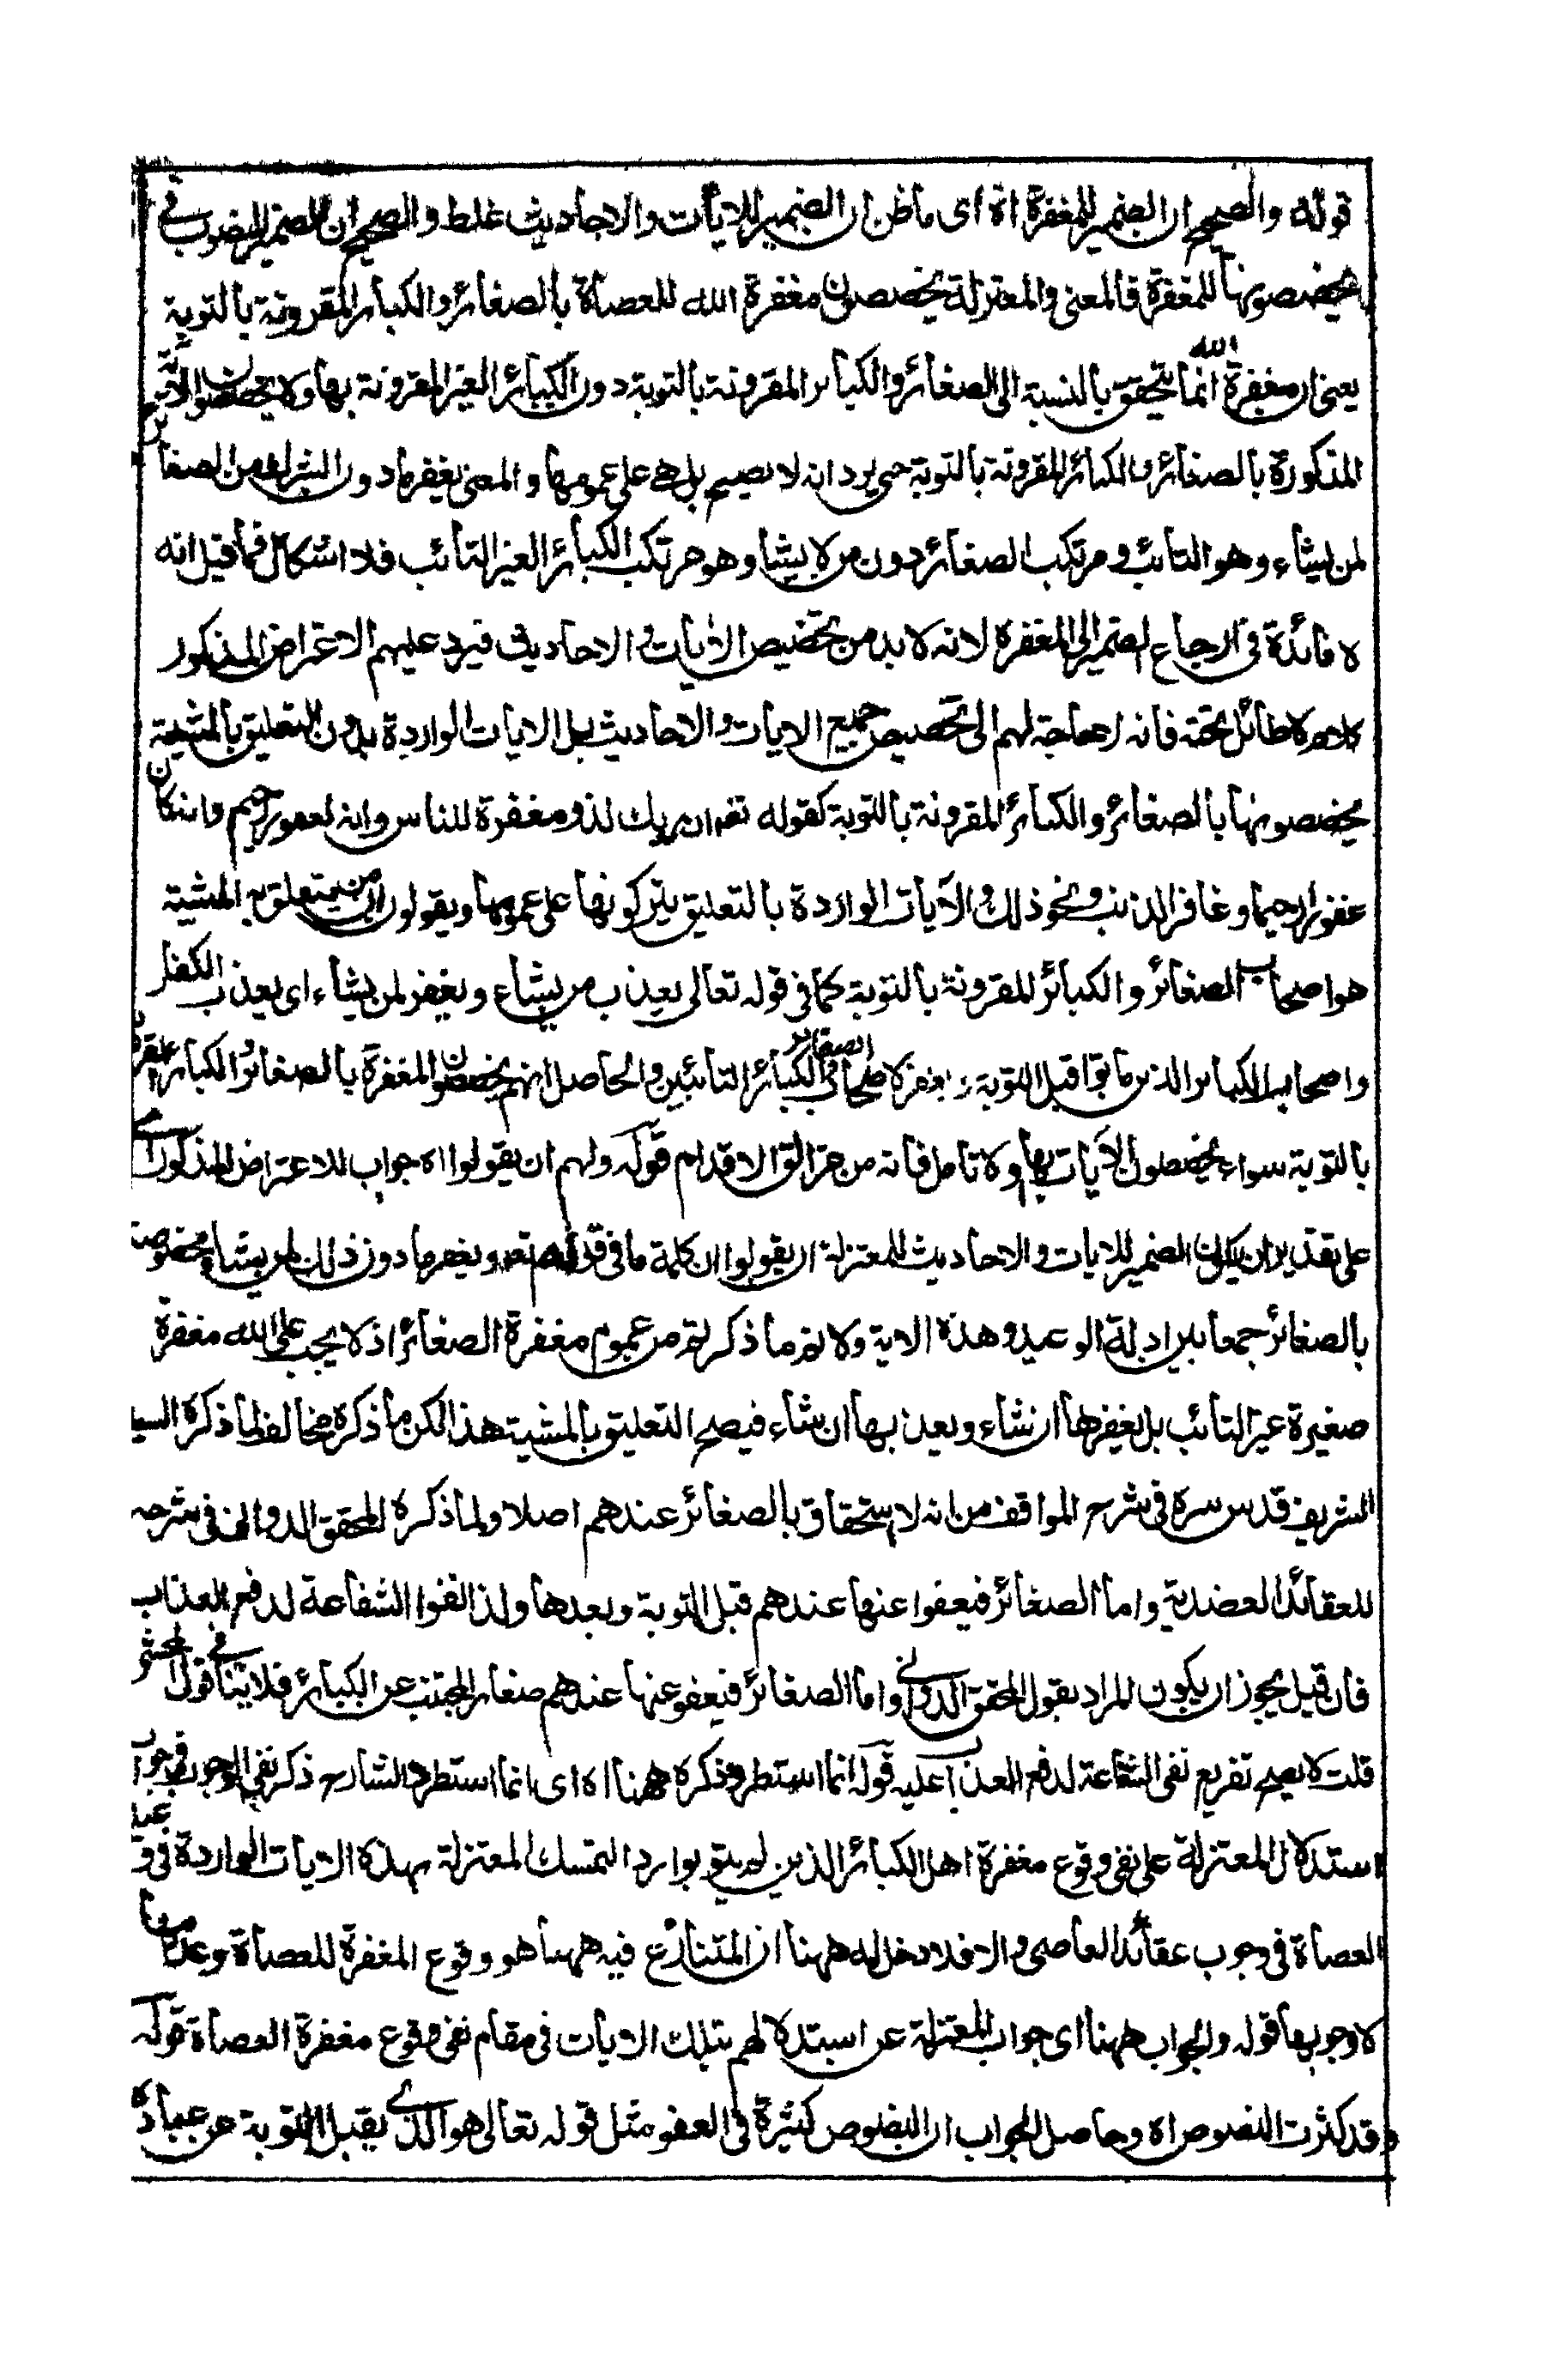 قوله والصحيح ان الضمير للمغفرة اه اى ما ظن ان الضمير للايات والاحاديث غلط والصحيح ان الضمير المنصوب فى
يخصصونها للمغفرة فالمعنى والمعتزلة يخصصون مغفرة الله للعصاة بالصغائر والكبائر المقرونة بالتوبة
يعنى ان مغفرة الله انما يتحقق بالنسبة الى الصغائر والكبائر المقرونة بالتوبة دون الكبائر الغير المقرونة بها ولا يخصصون الاية
المذكورة بالصغائر والكبائر المقرونة بالتوبة حتى يرد انه لا يصح بل هى على عمومها والمعنى يغفر ما دون الشرك من الصغا
لمن يشاء وهو التائب ومرتكب الصغائر دون من لا يشاء وهو مرتكب الكبائر الغير التائب فلا اشكال فما قيل انه
لا فائدة فى ارجاع الضمير الى المغفرة لانه لا بد من تخصيص الايات والاحاديث فيرد عليهم الاعتراض المذكور
كلام لا طائل تحته فانه لا حاجة لهم الى تخصيص جميع الايات والاحاديث بل الايات الواردة بدون التعليق بالمشية
يخصصونها بالصغائر والكبائر المقرونة بالتوبة كقوله تعم ان ربك لذو مغفرة للناس وانه لغفور رحيم وانه كان
غفورا رحيما وغافر الذنب ونحو ذلك والآيات الواردة بالتعليق يتركونها على عمومها ويقولون ان من يتعلق به المشية
هو اصحاب الصغائر والكبائر المقرونة بالتوبة كما فى قوله تعالى يعذب من يشاء ويغفر لمن يشاء اى يعذب الكفار
واصحاب الكبائر الذين ماتوا قبل التوبة ويغفر لاصحاب الصغائر والكبائر التائبين والحاصل انهم يخصصون المغفرة بالصغائر والكبائر المقرونة
بالتوبة سواء يخصصون الآيات بها ولا تامل فانه من مزالق الاقدام قوله ولهم ان يقولوا اه جواب للاعتراض المذكور اى
على تقدير ان يكون الضمير للايات والاحاديث للمعتزلة ان يقولوا ان كلمة ما فى قوله تعم ويغفر ما دون ذلك لمن يشاء مخصوصة
بالصغائر جمعا بين ادلة الوعيد وهذه الاية ولا نم ما ذكرتم من عموم مغفرة الصغائر اذ لا يجب على الله مغفرة
صغيرة غير التائب بل يغفرها ان شاء ويعذب بها ان شاء فيصح التعليق بالمشية هذا لكن ما ذكره مخالف لما ذكره السيد
الشريف قدس سره فى شرح المواقف من انه لا استحقاق بالصغائر عندهم اصلا ولما ذكره المحقق الدوانى فى شرحه
للعقائد العضدية واما الصغائر فيعفوا عنها عندهم قبل التوبة وبعدها ولذا نفوا الشفاعة لدفع العذاب
فان قيل يجوز ان يكون المراد بقول المحقق الدوانى واما الصغائر فيعفو عنها عندهم صغائر المجتنب عن الكبائر فلا ينافى قول المحشى
قلت لا يصح تفريع نفى الشفاعة لدفع العذاب عليه قوله انما استطرد ذكره ههنا اه اى انما استطرد الشارح ذكر نفى الوجوب فى جواب
استدلال المعتزلة على نفى وقوع مغفرة اهل الكبائر الذين لم يتوبوا رد التمسك المعتزلة بهذه الايات الواردة فى وعيد
العصاة فى وجوب عقاب العاصى والا فلا دخل له ههنا اذ المتنازع فيه ههنا هو وقوع المغفرة للعصاة وعدمها
لا وجوبها قوله والجواب ههنا اى جواب المعتزلة عن استدلالهم بتلك الايات فى مقام نفى وقوع مغفرة العصاة قوله
وقد كثرت النصوص اه وحاصل الجواب ان النصوص كثيرة فى العفو مثل قوله تعالى هو الذى يقبل التوبة عن عباده